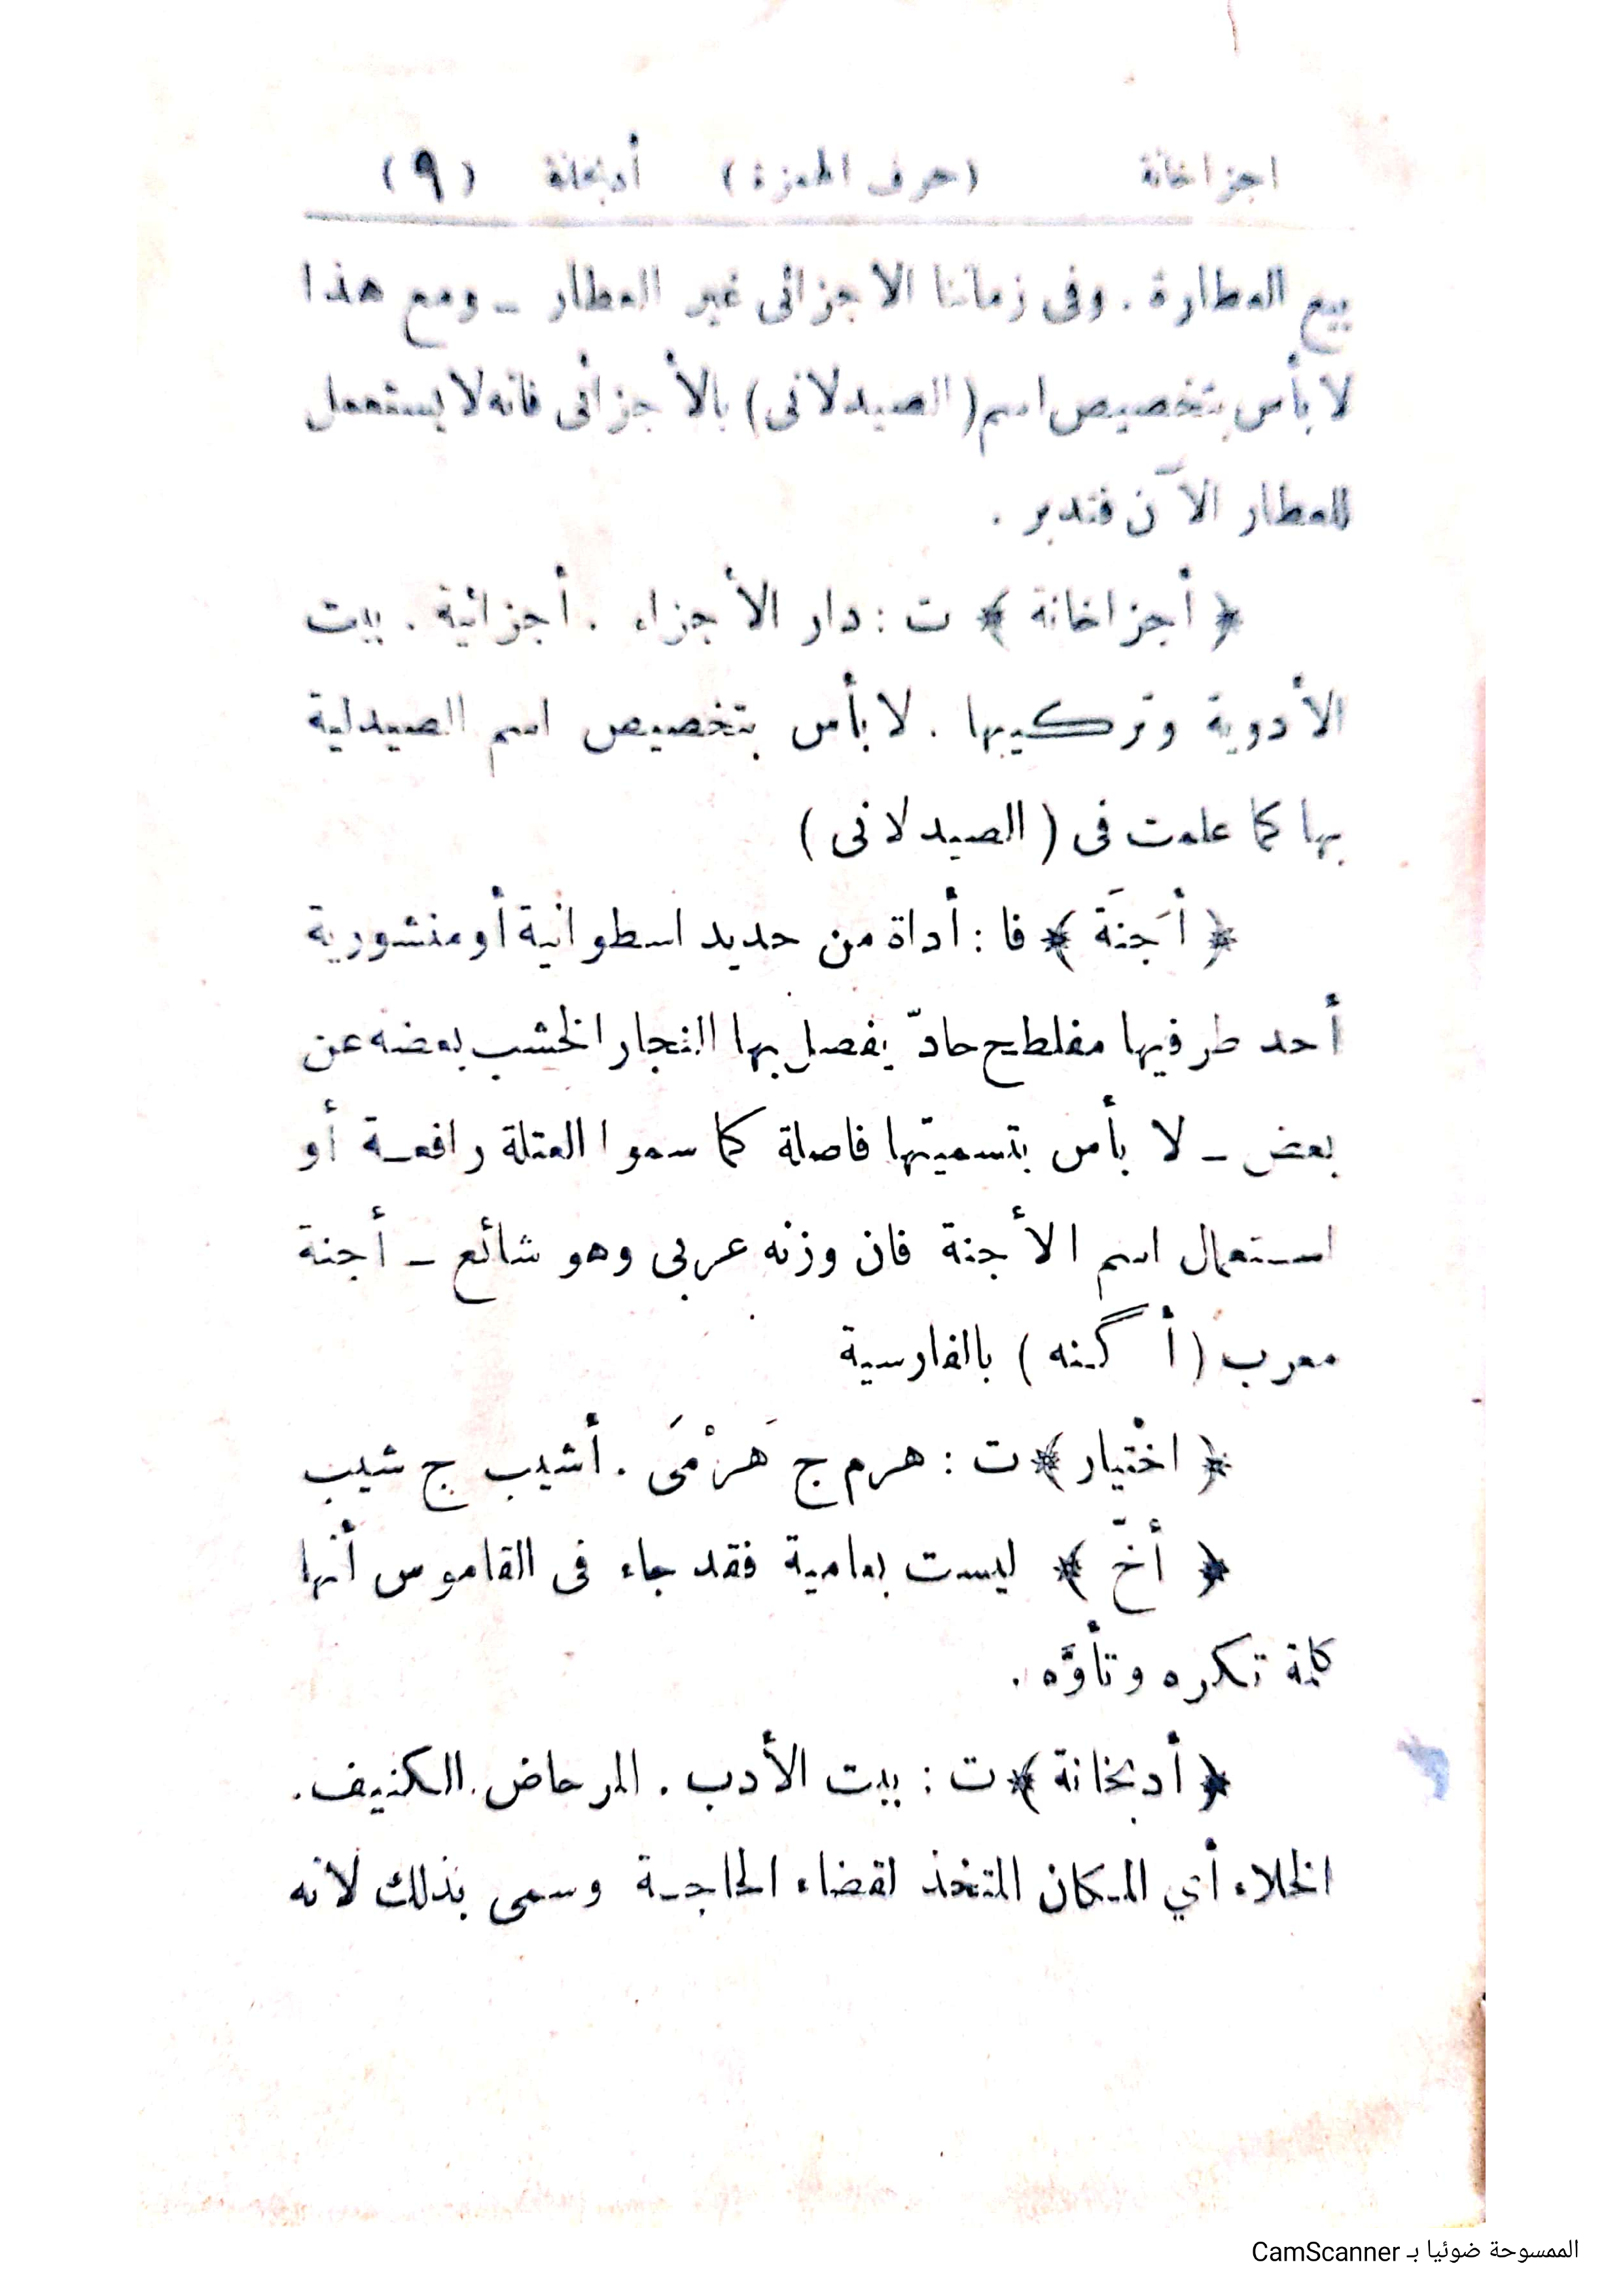 اجزاخانة (حرف الهمزة) أدبخانة (٩)
بيع العطارة . وفى زماننا الاجزائى غير العطار ــ ومع هذا
لا بأس بتخصيص اسم (الصيدلانى) بالأجزائى فانه لا يستعمل
للعطار الآن فتدبر .
﴿ أجزاخانة ﴾ ت : دار الأجزاء . أجزائية . بيت
الأدوية وتركيبها . لا بأس بتخصيص اسم الصيدلية
بها كما علمت فى ( الصيدلانى )
﴿ أَجنَة ﴾ فا : أداة من حديد اسطوانية أو منشورية
أحد طرفيها مفلطح حادّ يفصل بها النجار الخشب بعضه عن
بعض ــ لا بأس بتسميتها فاصلة كما سموا العتلة رافعة أو
استعمال اسم الأجنة فان وزنه عربى وهو شائع ــ أجنة
معرب ( أگنه ) بالفارسية
﴿ اخْتيار ﴾ ت : هرم ج هَرْمَى . أشيب ج شيب
﴿ أخّ ﴾ ليست بعامية فقد جاء فى القاموس أنّها
كلمة تكره وتأوَّه .
﴿ أدبخانة ﴾ ت : بيت الأدب . المرحاض . الكنيف .
الخلاء أي المكان المتخذ لقضاء الحاجة وسمى بذلك لانه
الممسوحة ضوئيا بـ CamScanner